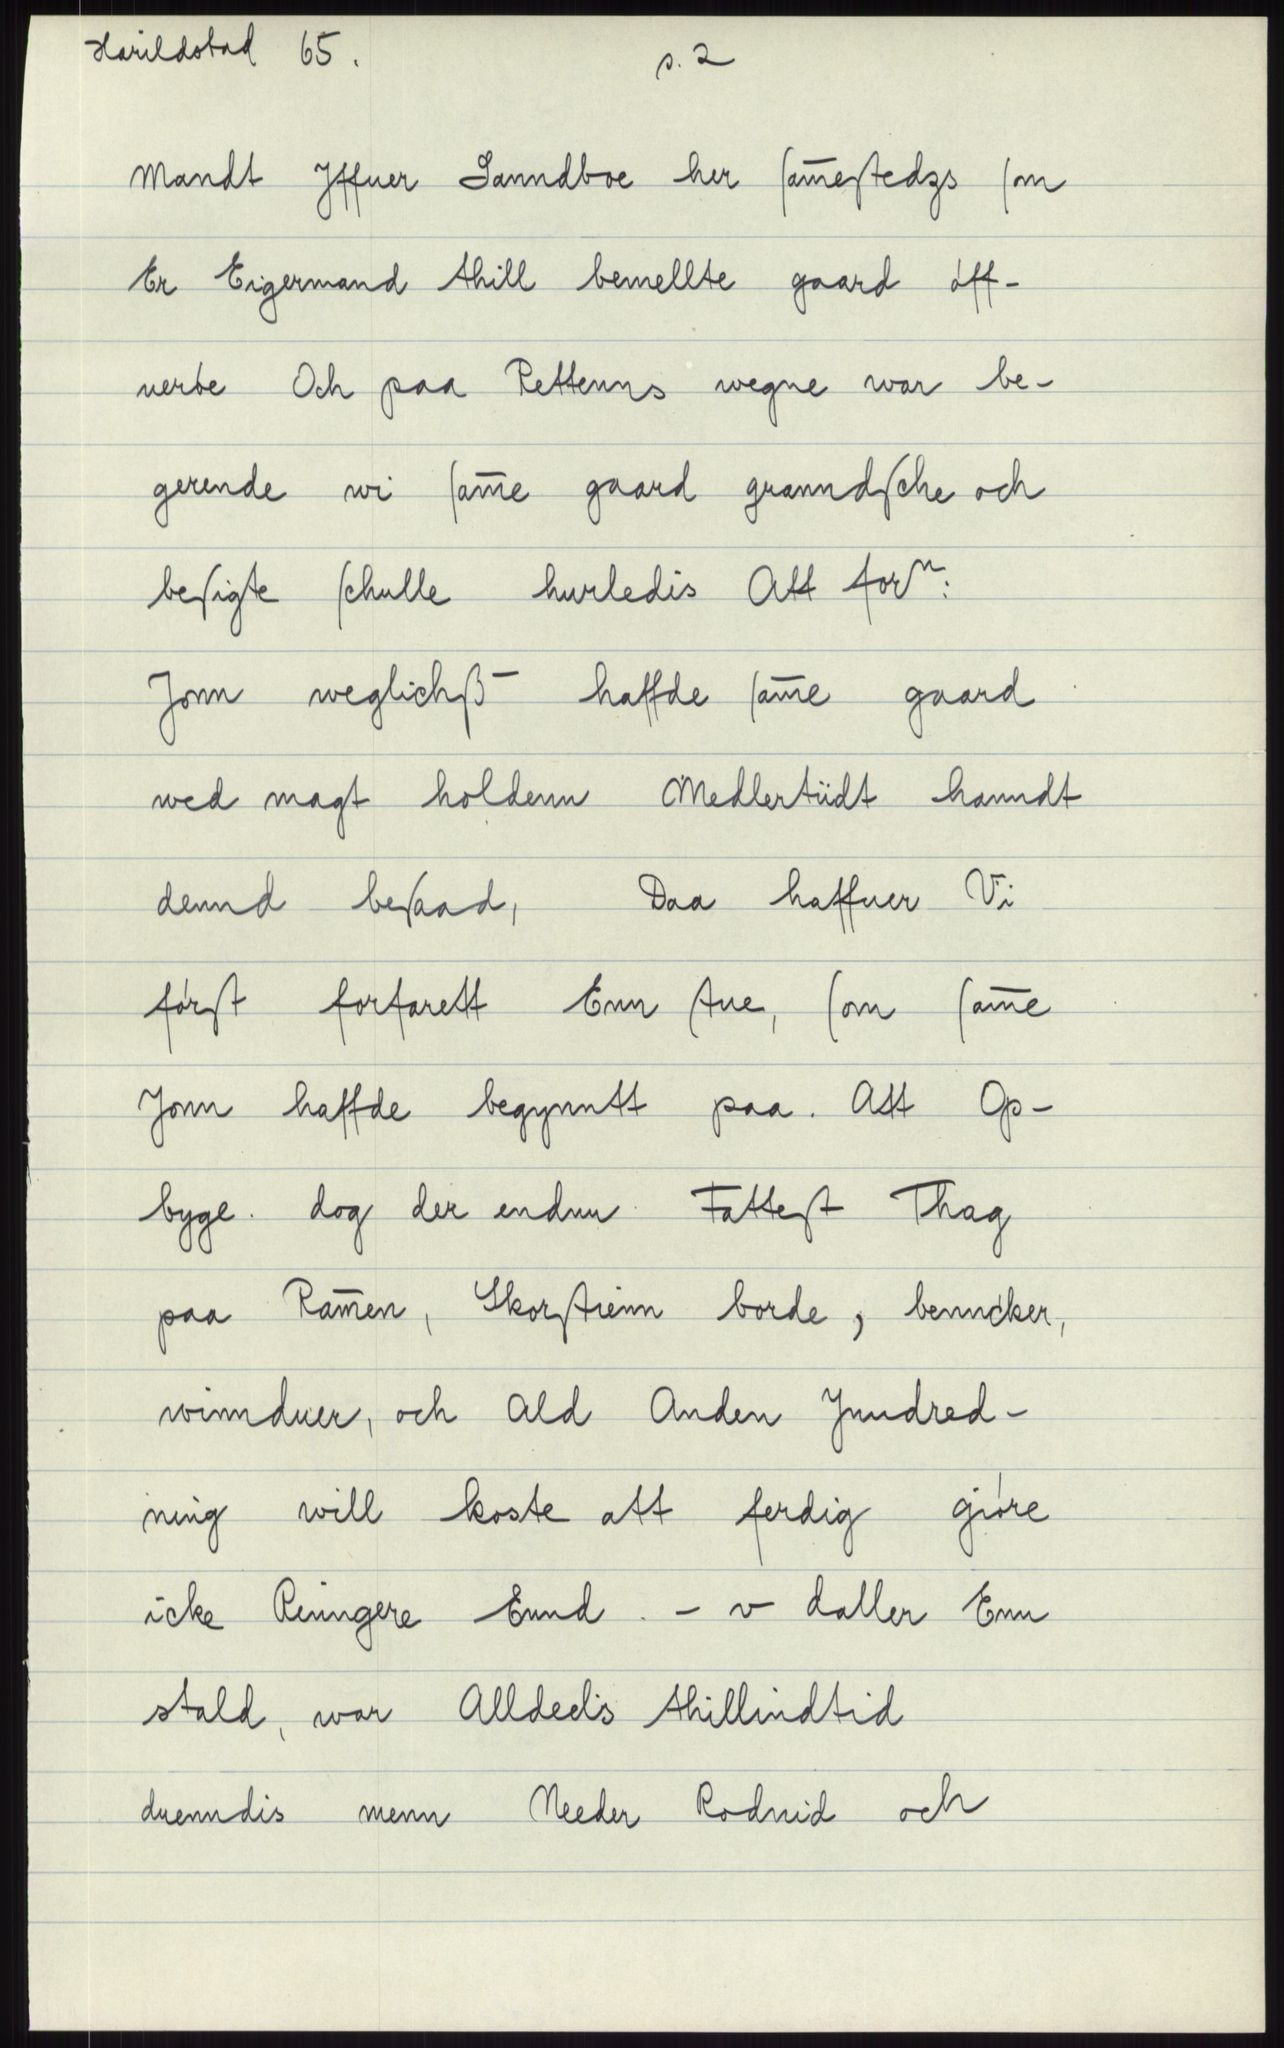 Harildstad 65. s. 2
Mandt Jffuer Sanndboe her ſam̄eſtedzs ſom
Er Eigermand thill bemellte gaard öff-
uerbe Och paa Rettenns wegne war be-
gerende wi ſam̄e gaard granndſche och
beſigte ſchulle hurledis Att forⁿ:
Jonn weglichß haffde ſam̄e gaard
wed magt holdenn Medlertiidt hanndt
dennd beſaad, Daa haffuer Vi
förſt forfarett Enn ſtue, ſom ſam̄e
Jonn haffde begynntt paa. Att Op-
byge. dog der endnu Fatteſt Thag
paa Ram̄en, Skorſtienn borde, benncker,
winnduer, och Ald Anden Jnndred-
ning will koste att ferdig giöre
icke Ringere Ennd. - v daller Enn
stald, war Alldeelis thillindtid
duenndis menn Needer Rodnid och